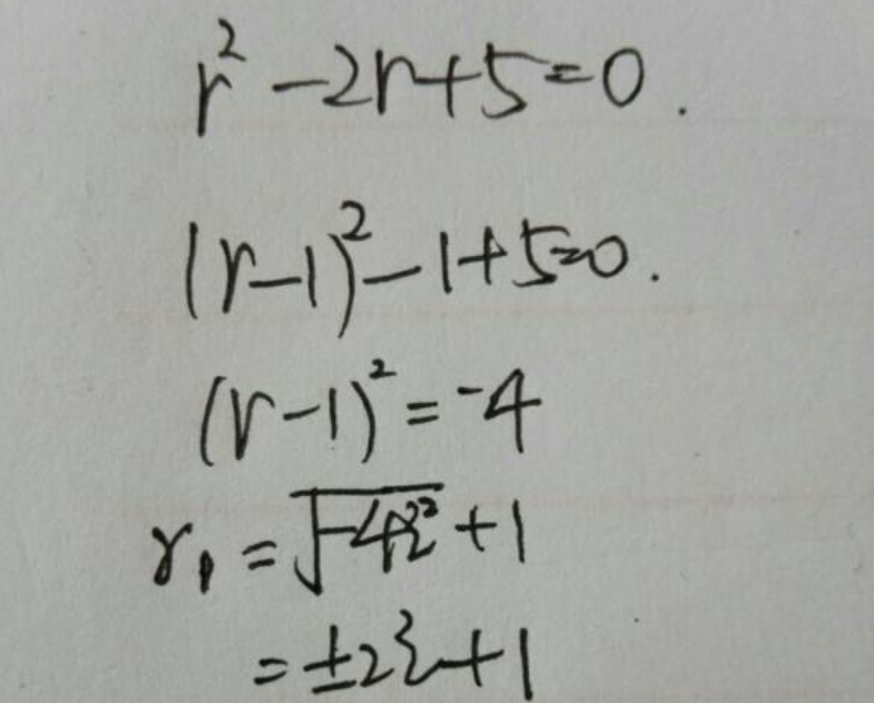 r² -2r+5=0.
(r-1)²-1+5=0.
(r-1)²=-4
r₁=√-4i² +1
=±2i+1